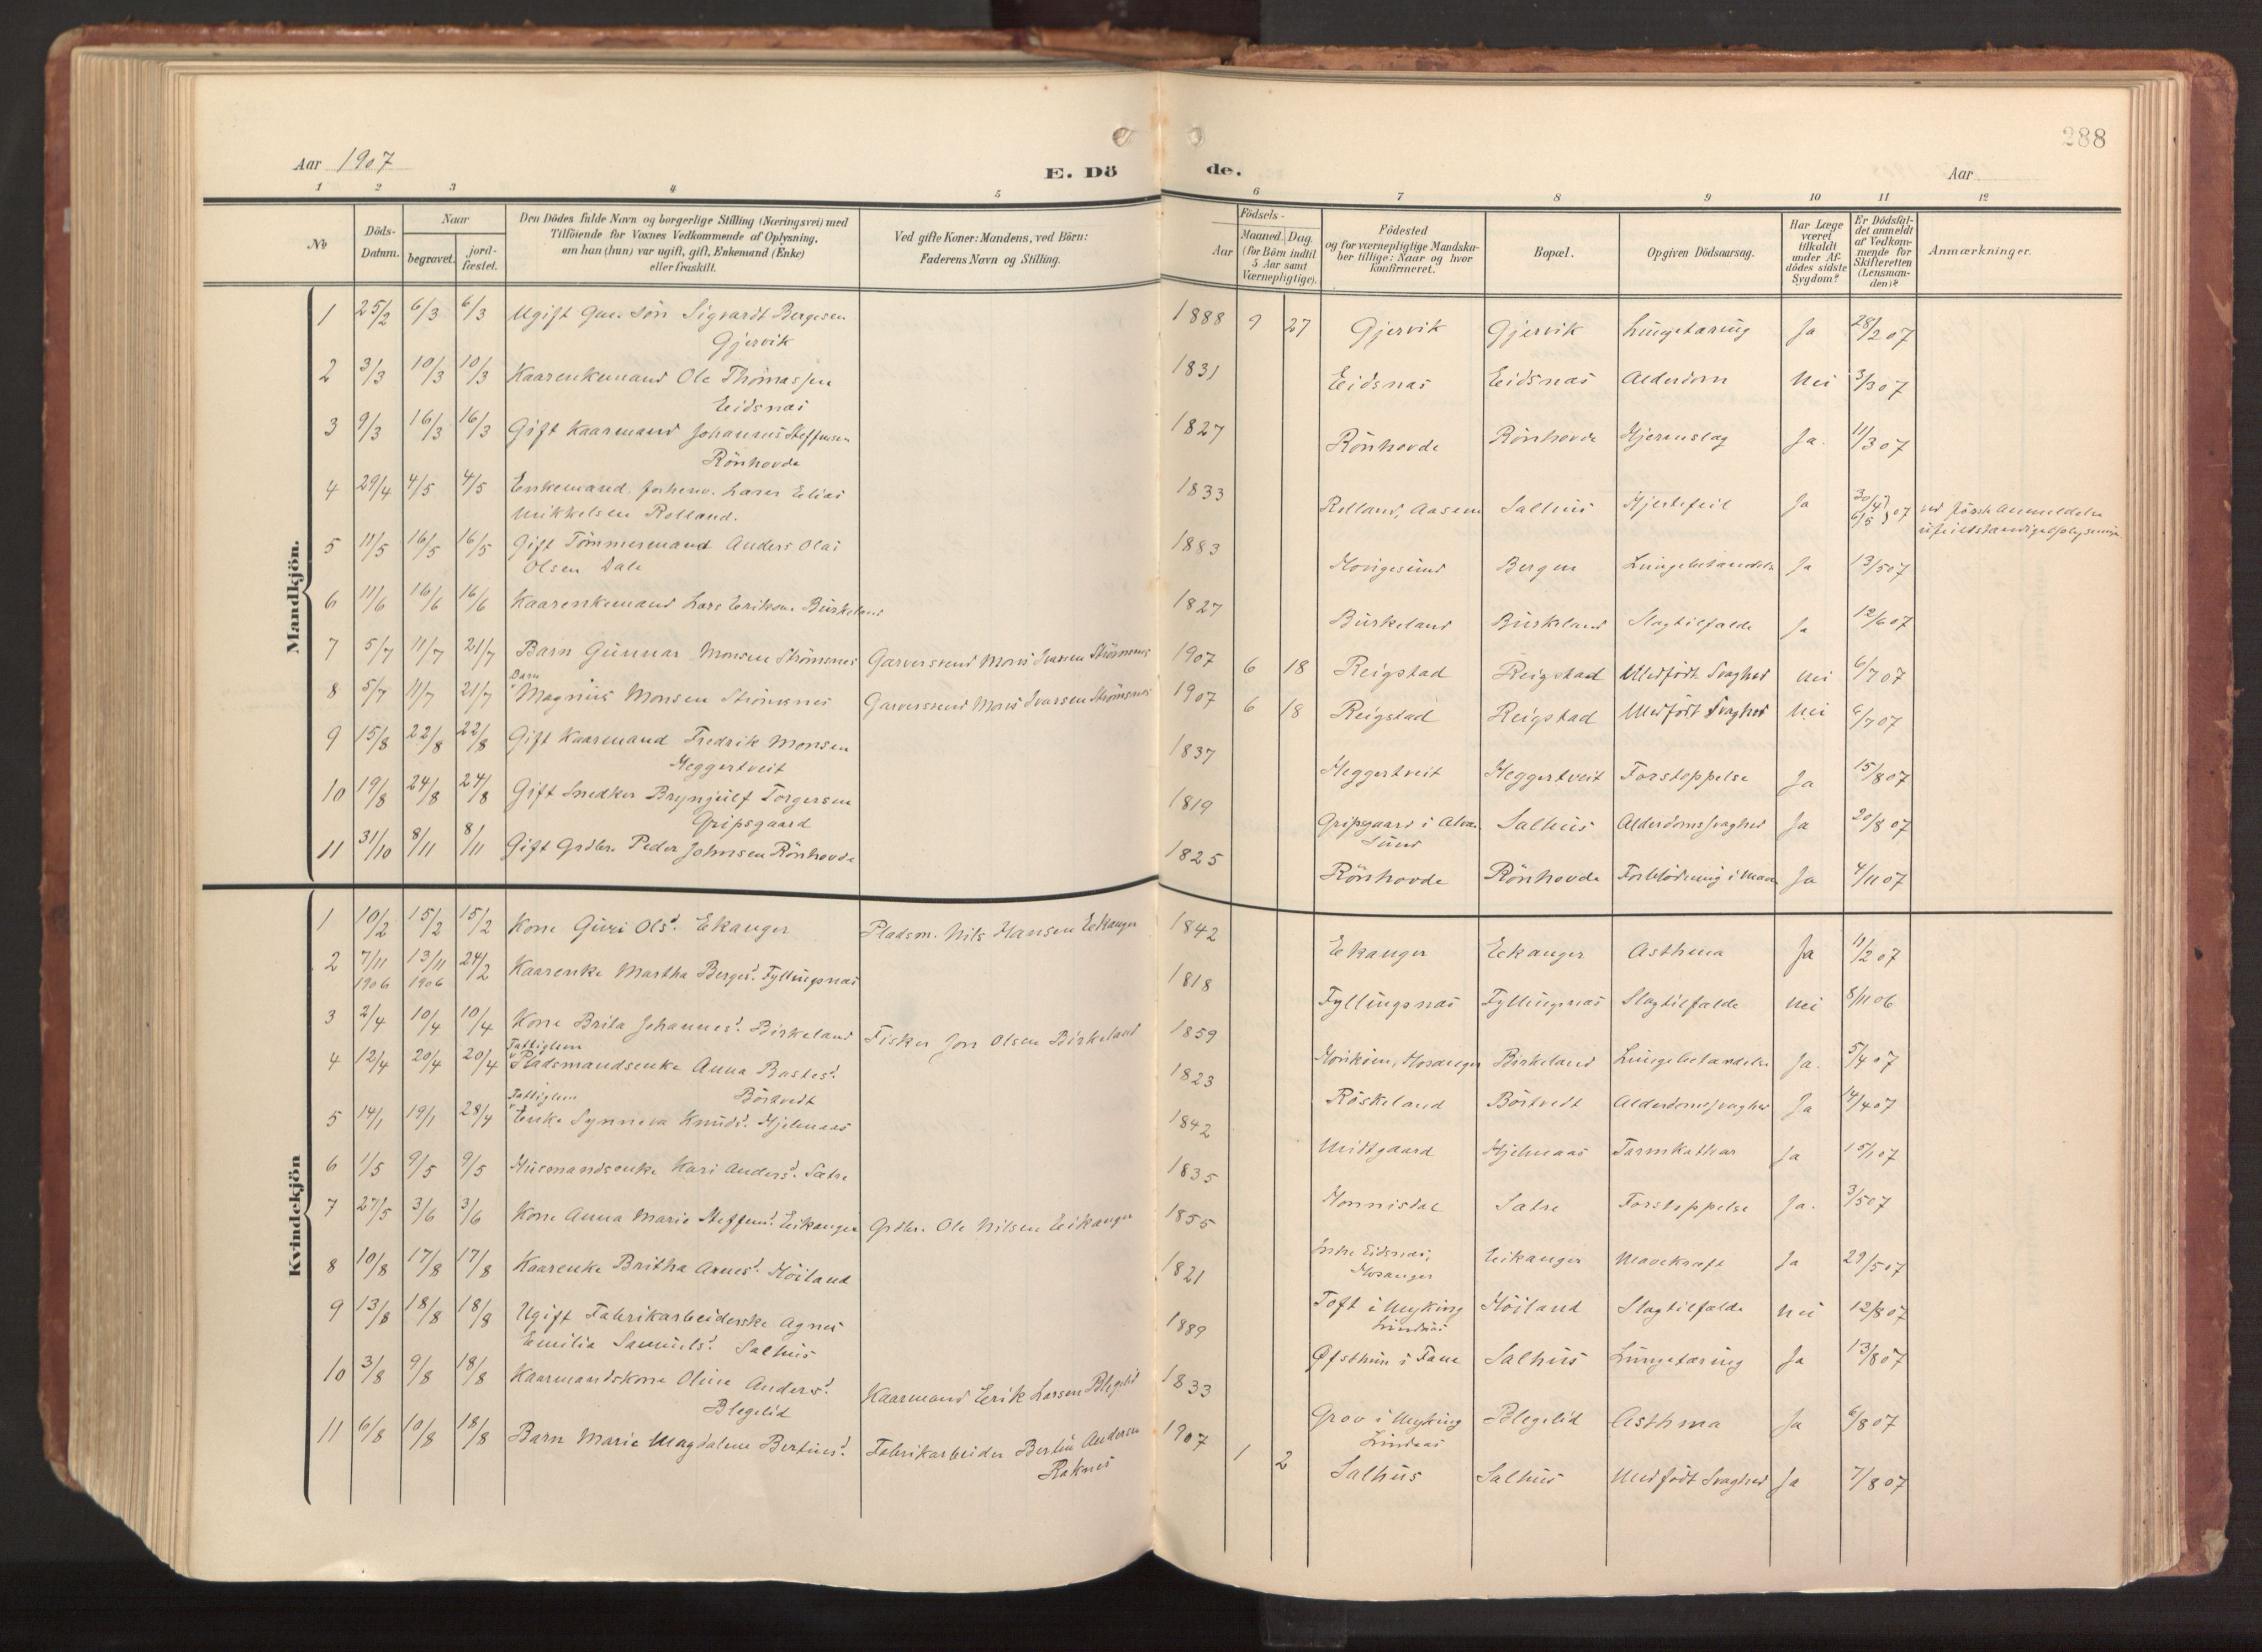 288
Aar 1907
E. Dö
de.
Aar
1 2 3 4 5 6 7 8 9 10 11 12
No
Döds-Datum.
Naar
begravet.
jord-fæstet.
Den Dödes fulde Navn og borgerlige Stilling (Næringsvei) med
Tilföiende for Voxnes Vedkommende af Oplysning,
om han (hun) var ugift, gift, Enkemand (Enke)
eller fraskilt.
Ved gifte Koner: Mandens, ved Börn:
Faderens Navn og Stilling.
Födsels-
Aar
Maaned. Dag.
(for Börn indtil
5 Aar samt
Værnepligtige).
Födested
og for værnepligtige Mandska-
ber tillige: Naar og hvor
konfirmeret.
Bopæl.
Opgiven Dödsaarsag.
Har Læge
været
tilkaldt
under Af-
dödes sidste
Sygdom?
Er Dödsfal-
det anmeldt
af Vedkom-
mende for
Skifteretten
(Lensman-
den)?
Anmærkninger.
Mandkjön.
1 25/2 6/3 6/3 Ugift Gm. Sön Sigvardt Bergesen 1888 9 27 Gjervik Gjervik Lungetæring Ja 28/2 07
Gjervik
2 3/3 10/3 10/3 Kaarenkemand Ole Thomassen 1831 Eidsnæs Eidsnæs Alderdom Nei 3/3 07
Eidsnæs
3 9/3 16/3 16/3 Gift Kaarmand Johannes Steffensen 1827 Rönhovde Rönhovde Hjerneslag Ja. 11/3 07
Rönhovde
4 29/4 4/5 4/5 Enkemand forhenv. Lærer Elias 1833 Rolland, Aasene Salhus Hjertefeil Ja 30/4 6/5 07 ved förste Anmeldelse
Mikkelsen Rolland. ufuldstændige Oplysninger
5 11/5 16/5 16/5 Gift Tömmermand Anders Olai 1883 Hougesund Bergen Lungebetændelse Ja 13/5 07
Olsen Dale
6 11/6 16/6 16/6 Kaarenkemand Lars Eriksen Burkeland 1827 Burkeland Burkeland Slagtilfælde Ja 12/6 07
7 5/7 11/7 21/7 Barn Gunnar Monsen Strömsnes Garversvend Mons Ivarsen Strömsnes 1907 6 18 Reigstad Reigstad Medfödt Svaghed Nei 6/7 07
8 5/7 11/7 21/7 Barn Magnus Monsen Strömsnes Garversvend Mons Ivarsen Strömsnes 1907 6 18 Reigstad Reigstad Medfödt Svaghed Nei 6/7 07
9 15/8 22/8 22/8 Gift Kaarmand Fredrik Monsen 1837 Heggertveit Heggertveit Forstoppelse Ja 15/8 07
Heggertveit
10 19/8 24/8 24/8 Gift Snedker Brynjulf Torgersen 1819 Gripsgaard i Alver Salhus Alderdomssvaghed Ja 20/8 07
Gripsgaard Sund
11 31/10 8/11 8/11 Gift Grdbr. Peder Johnsen Rönhovde 1825 Rönhovde Rönhovde Forblödning i Maven Ja 4/11 07
Kvindekjön
1 10/2 15/2 15/2 Kone Guri Olsd. Ekanger Pladsm. Nils Hansen Eekanger 1842 Eekanger Eekanger Asthma Ja 11/2 07
2 7/11 1906 13/11 1906 24/2 Kaarenke Martha Bergesd. Fyllingsnæs 1818 Fyllingsnæs Fyllingsnæs Slagtilfælde Nei 8/11 06
3 2/4 10/4 10/4 Kone Brita Johannesd. Birkeland Fisker Jon Olsen Birkeland 1859 Hosanger Birkeland Lungebetændelse Ja. 5/4 07
4 12/4 20/4 20/4 Fattiglem Pladsmandsenke Anna Bastesd. 1823 Röskeland Börtvedt Alderdomssvaghed Ja 14/4 07
Börtvedt
5 14/1 19/1 28/4 Fattiglem Enke Synneva Knudsd. Hjelmaas 1842 Midtgaard Hjelmaas Tarmkathar Ja 15/1 07
6 1/5 9/5 9/5 Husmandsenke Kari Andersd. Sætre 1835 Monnisdal Sætre Forstoppelse Ja. 3/5 07
7 27/5 3/6 3/6 Kone Anna Marie Steffensd. Eikanger Grdbr. Ole Nilsen Eikanger 1855 Indre Eidsnæs, Eikanger Mavekræft Ja 29/5 07
Hosanger
8 10/8 17/8 17/8 Kaarenke Britha Arnesd. Höiland 1821 Toft i Myking Höiland Slagtilfælde Nei 12/8 07
Lindaas
9 13/8 18/8 18/8 Ugift Fabrikarbeiderske Agnes 1889 Øfsthun i Fane Salhus Lungetæring Ja 13/8 07
Emilia Samuelsd. Salhus
10 3/8 9/8 18/8 Kaarmandskone Oline Andersd. Kaarmand Erik Larsen Blegelid 1833 Grov i Myking Blegelid Asthma Ja 6/8 07
Blegelid Lindaas
11 6/8 10/8 18/8 Barn Marie Magdalene Bertinsd. Fabrikarbeider Bertin Andersen 1907 1 2 Salhus Salhus Medfödt Svaghed Ja 7/8 07
Raknes